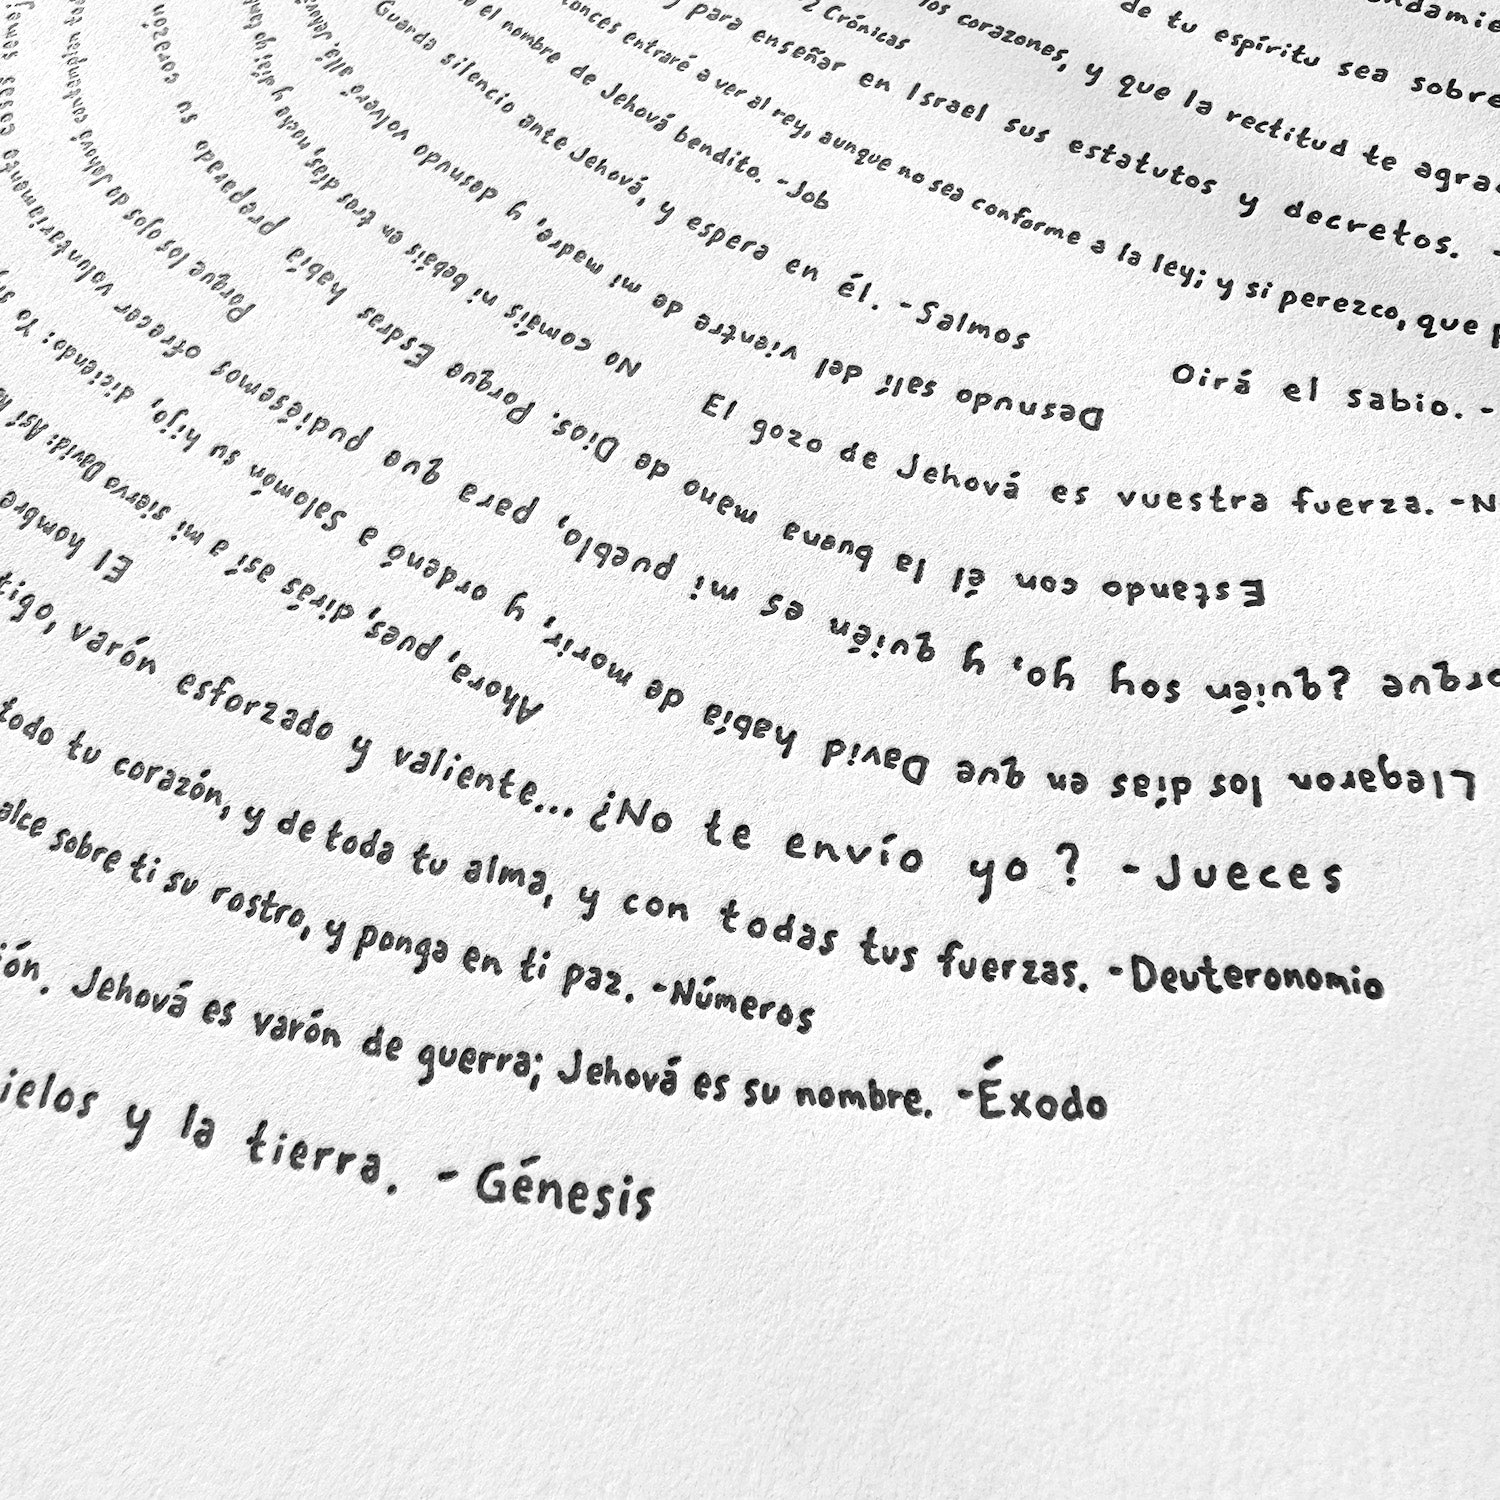 ndamie
de tu espíritu sea sobre
los corazones, y que la rectitud te agra
2 Crónicas
y para enseñar en Israel sus estatutos y decretos. -
tonces entraré a ver al rey, aunque no sea conforme a la ley; y si perezco, que p
el nombre de Jehová bendito. -Job
Guarda silencio ante Jehová, y espera en él. -Salmos
Oirá el sabio. -
Desnudo salí del vientre de mi madre, y desnudo volveré allá. Jehová
No comáis ni bebáis en tres días, noche y día; yo también
El gozo de Jehová es vuestra fuerza. -N
Estando con él la buena mano de Dios. Porque Esdras había preparado su corazón
Porque los ojos de Jehová contemplan
orque ¿quién soy yo, y quién es mi pueblo, para que pudiésemos ofrecer voluntariamente cosas semej
Llegaron los días en que David había de morir, y ordenó a Salomón su hijo, diciendo: Yo
Ahora, pues, dirás así a mi siervo David: Así
El hombre
tigo, varón esforzado y valiente... ¿No te envío yo? -Jueces
todo tu corazón, y de toda tu alma, y con todas tus fuerzas. -Deuteronomio
alce sobre ti su rostro, y ponga en ti paz. -Números
ión. Jehová es varón de guerra; Jehová es su nombre. -Éxodo
ielos y la tierra. - Génesis